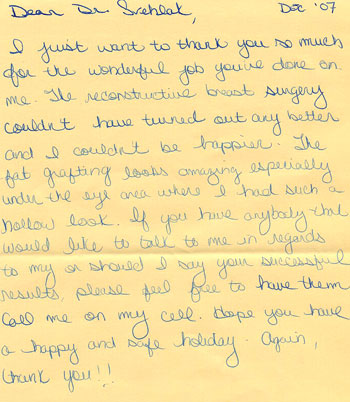 Dear Dr. Srehlak, Dec '07
I just want to thank you so much
for the wonderful job you've done on
me. The reconstructive breast surgery
couldn't have turned out any better
and I couldn't be happier. The
fat grafting looks amazing especially
under the eye area where I had such a
hollow look. If you have anybody that
would like to talk to me in regards
to my or should I say your successful
results, please feel free to have them
call me on my cell. Hope you have
a happy and safe holiday. Again,
thank you!!